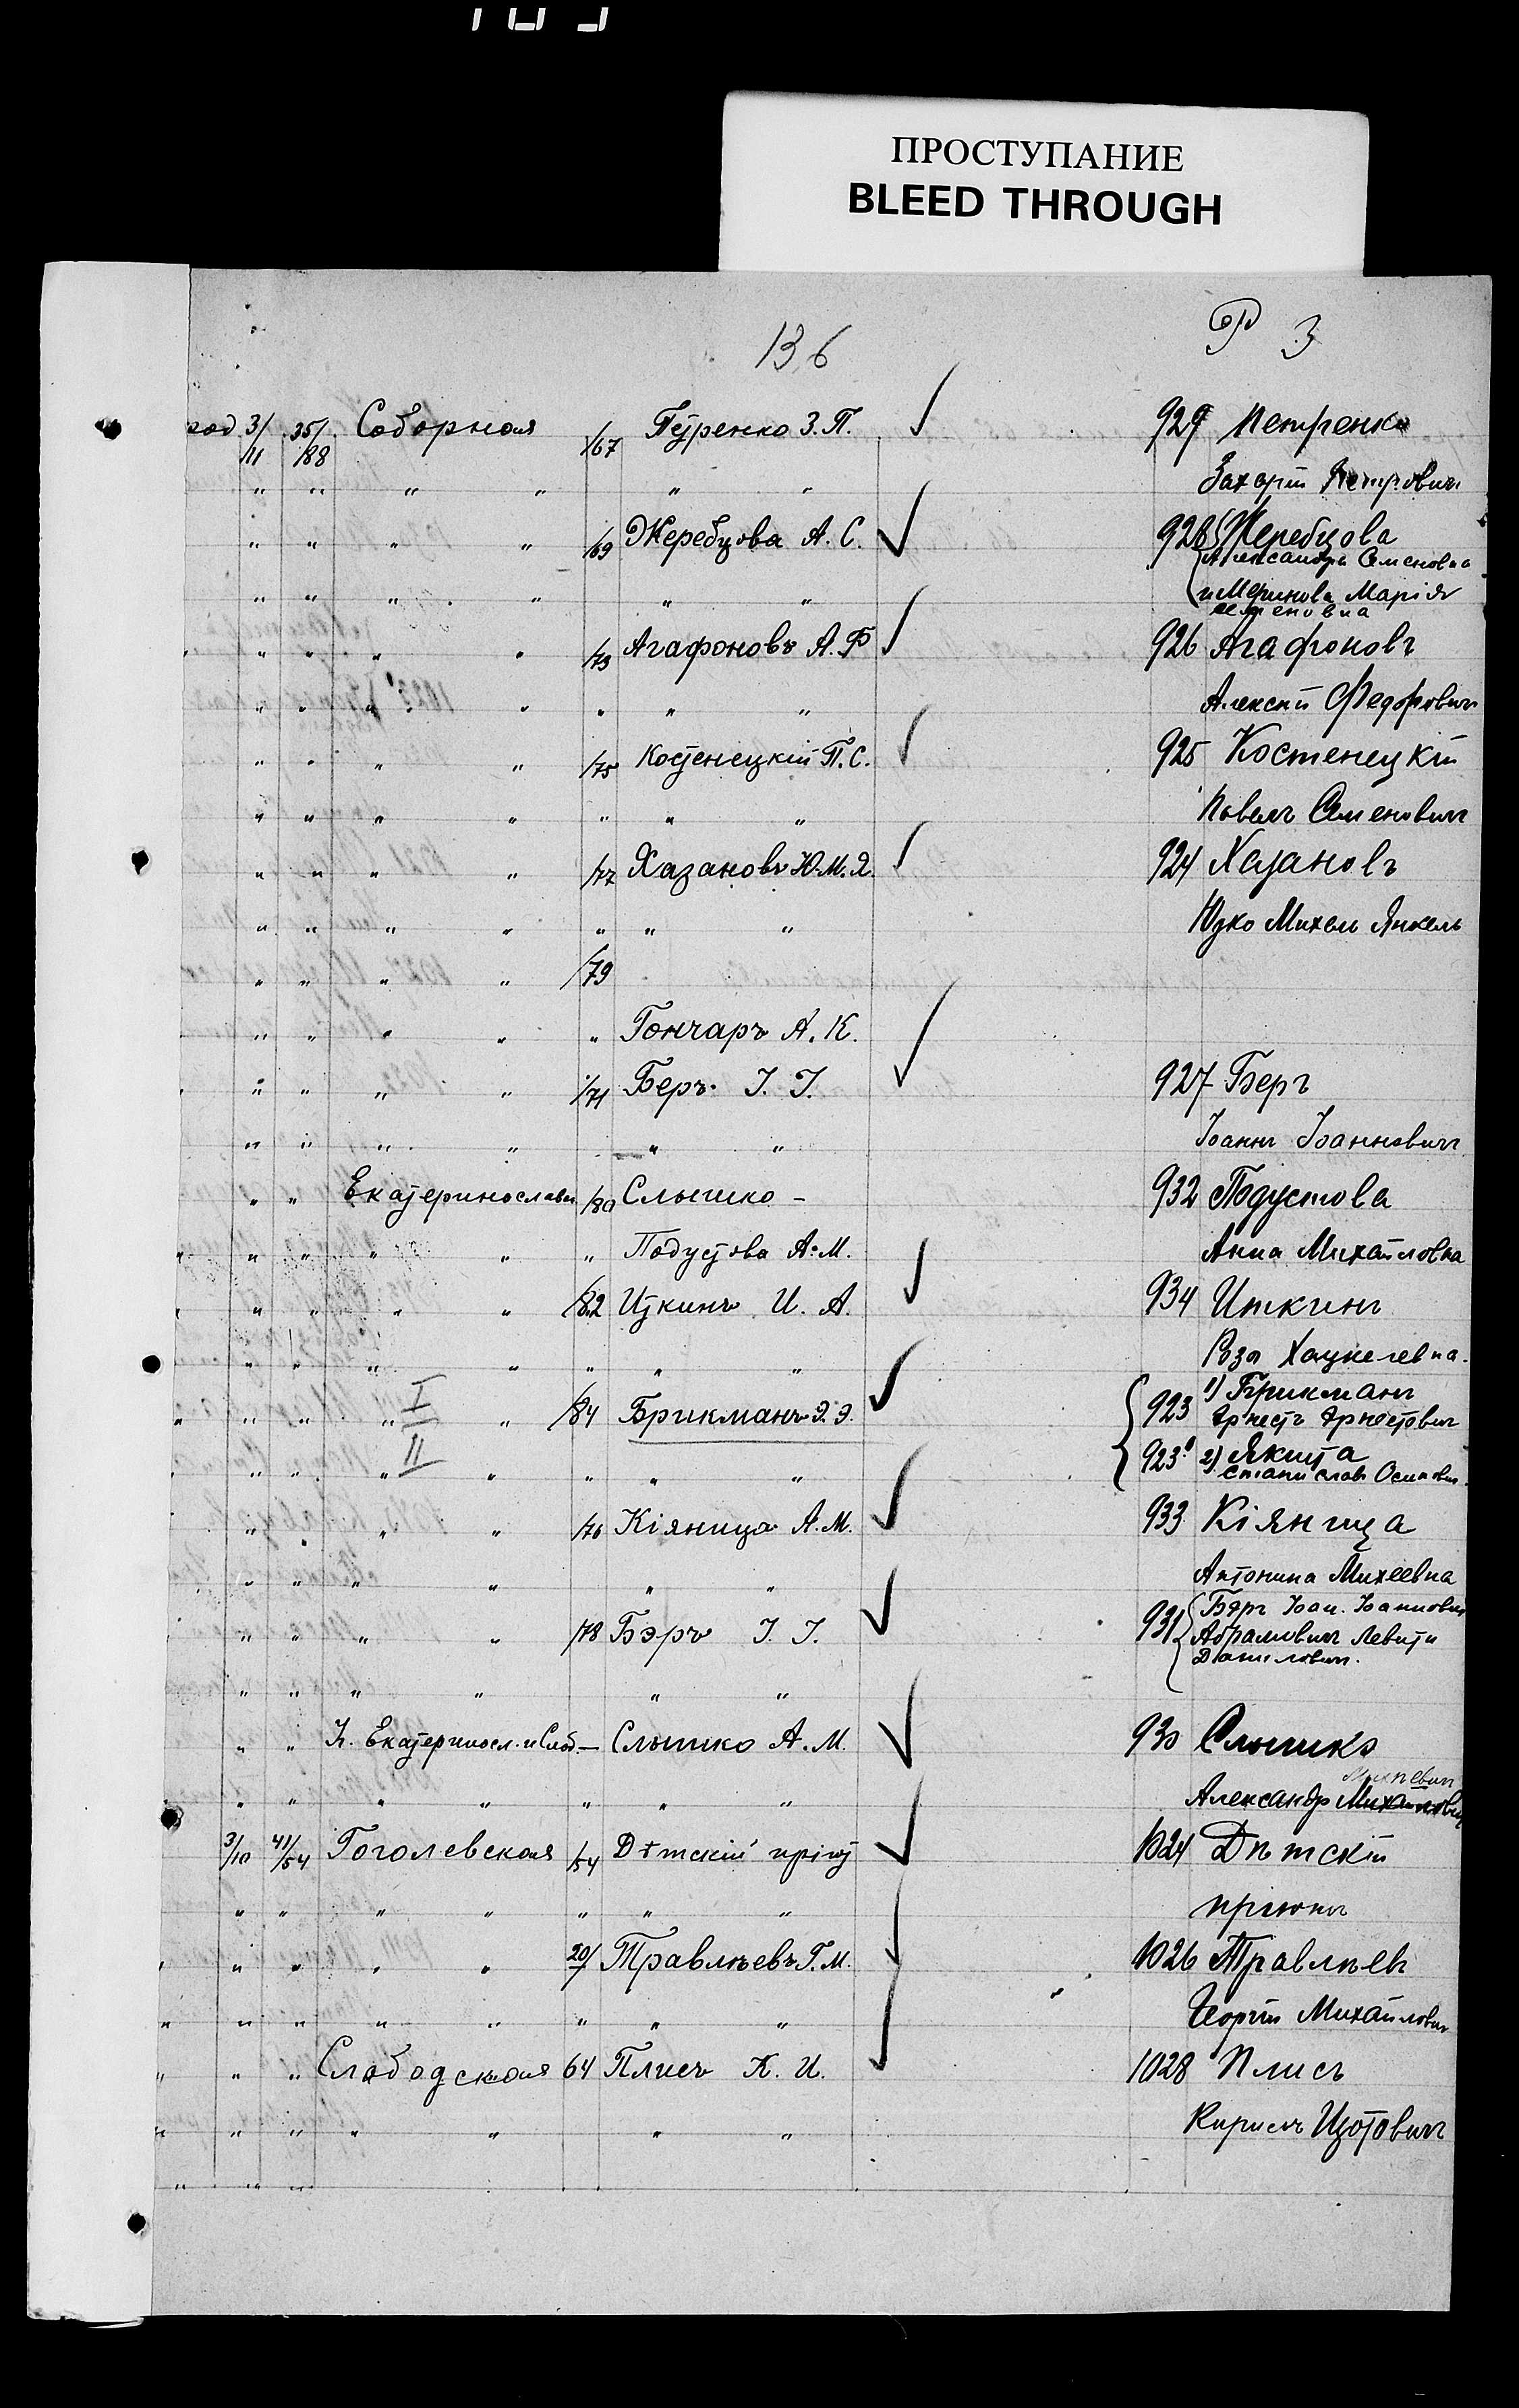 ПРОСТУПАНИЕ
BLEED THROUGH
136 Р 3
год 3/11 35/188 Соборная /67 Пуренко З. П. 929 Петренко
" " " " " " Захарій Петровичъ
" " " " /69 Жеребцова А. С. 928 Жеребцова
Александра Семеновна
" " " " " " и Меринова Марія
Семеновна
" " " " /73 Агафоновъ А. Ф 926 Агафоновъ
" " " " " " " Алексѣй Федоровичъ
" " " " /75 Костенецкій П. С. 925 Костенецкій
" " " " " " " Павелъ Семеновичъ
" " " " /77 Хазановъ Ю. М. Я. 924 Хазановъ
" " " " " " " Юзко Михель Янкель
" " " " /79
" " " " " Гончаръ А. К.
" " " " /71 Беръ І. І. 927 Беръ
" " " " " " Іоаннъ Іоанновичъ
" " Екатеринославск /80 Слышко – 932 Подустова
" " " " " " Подустова А. М. Анна Михайловна
" " " " /82 Иткинъ И. А. 934 Иткинъ
" " " " " " " Роза Хацкелевна.
" " " " I " /84 Брикманъ Э. Э. 923 1) Брикманъ
Эрнестъ Эрнестовичъ
" " " II " " " " 923¹ 2) Якита
Станиславъ Осипович.
" " " " /76 Кіяница А. М. 933 Кіяница
" " " " " " Антонина Михеевна
" " " " /78 Бэръ І. І. 931 Бэръ Іоан. Іоанновичъ
Абрамовичъ Левитъ
Даниловичъ.
" " " " " "
" " К. Екатериносл. и Слоб. – Слышко А. М. 930 Слышко
Михневич
" " " " " " " Александр Михайлович
3/10 41/54 Гоголевская /54 Дѣтскій пріют 1024 Дѣтскій
" " " " " " " пріютъ
" " " " 20/7 Травлѣевъ Г. М. 1026 Травлѣевъ
" " " " " " " " Георгій Михайлович
" " " Слободская 64 Плисъ К. И. 1028 Плисъ
" " " " " " " Кирилъ Изотовичъ
" " "